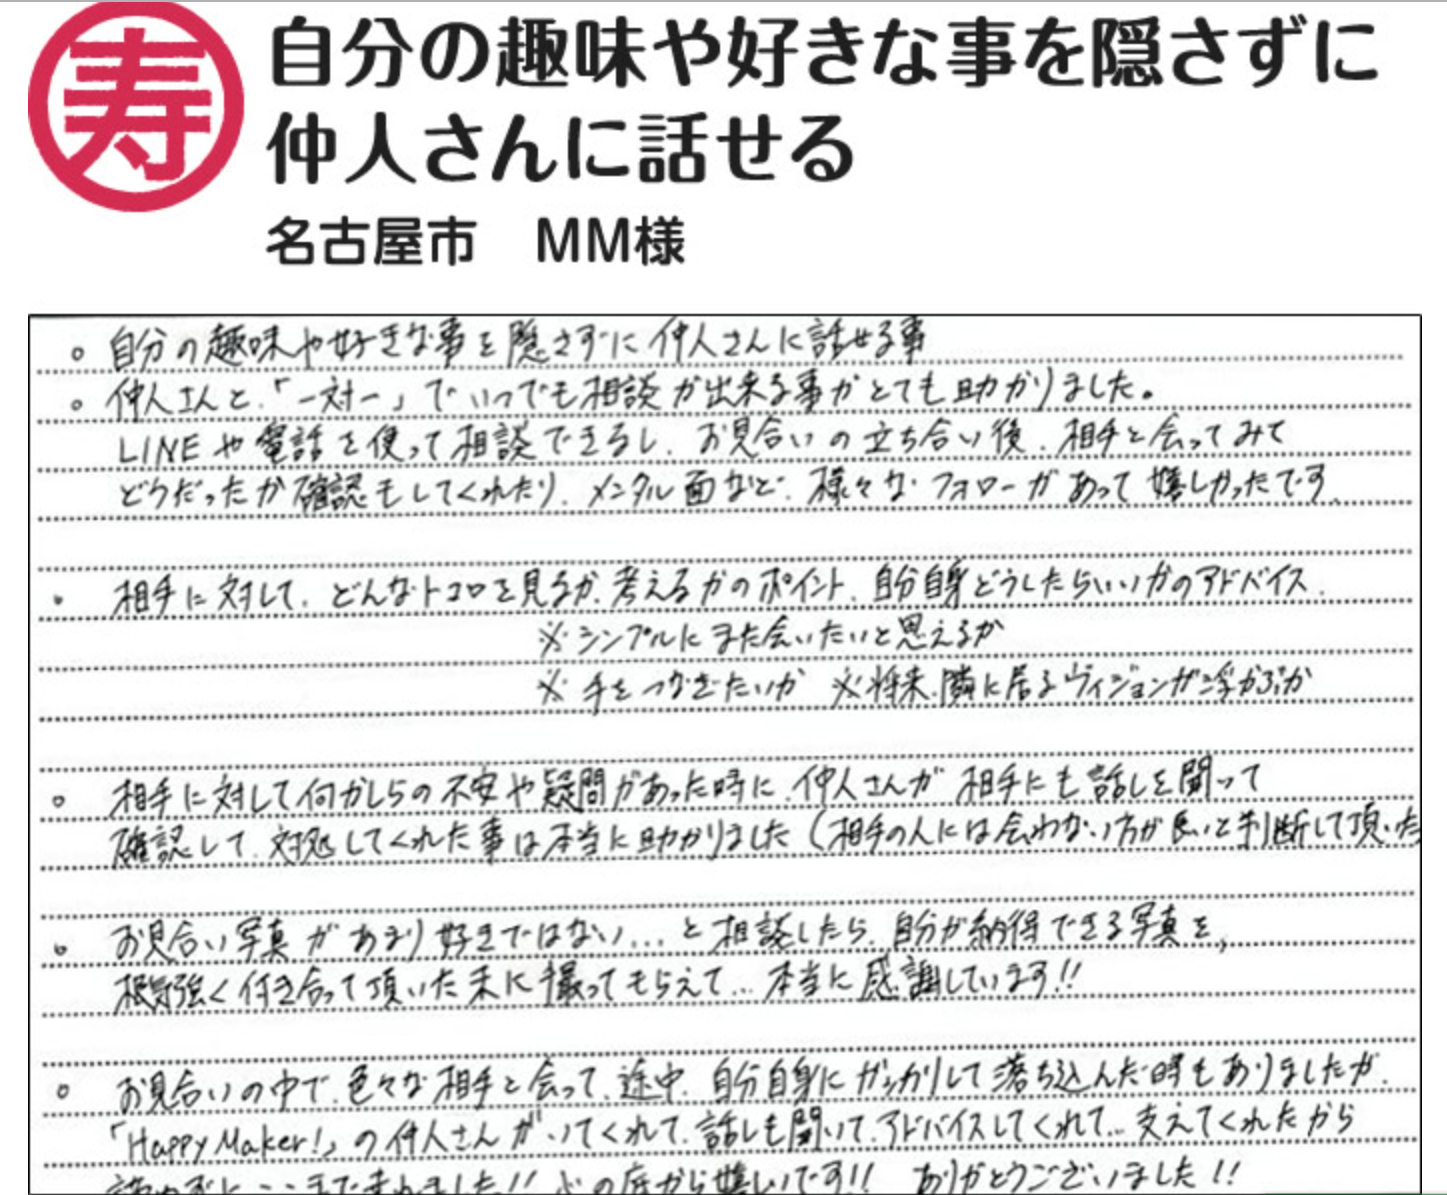 寿
自分の趣味や好きな事を隠さずに
仲人さんに話せる
名古屋市 MM様
。自分の趣味や好きな事を隠さずに仲人さんに話せる事
。仲人さんと、「一対一」でいつでも相談が出来る事がとても助かりました。
LINEや電話を使って相談できるし、お見合いの立ち合い後、相手と会ってみて
どうだったか確認もしてくれたり、メンタル面など、様々なフォローがあって嬉しかったです。
。相手に対して、どんなトコロを見るか、考えるかのポイント、自分自身どうしたらいいかのアドバイス、
※シンプルにまた会いたいと思えるか
※手をつなぎたいか ※将来、隣に居るヴィジョンが浮かぶか
。相手に対して何かしらの不安や疑問があった時に、仲人さんが相手にも話しを聞って
確認して、対処してくれた事は本当に助かりました(相手の人には会わない方が良いと判断して頂いた
。お見合い写真があまり好きではない...と相談したら、自分が納得できる写真を、
根気強く付き合って頂いた末に撮ってもらえて...本当に感謝しています!!
。お見合いの中で、色々な相手と会って、途中、自分自身にガッカリして落ち込んだ時もありましたが、
「Happy Maker!」の仲人さんがいてくれて、話しも聞いて、アドバイスしてくれて...支えてくれたから
諦めずにここまで来れました!!心の底から嬉しいです!! ありがとうございました!!